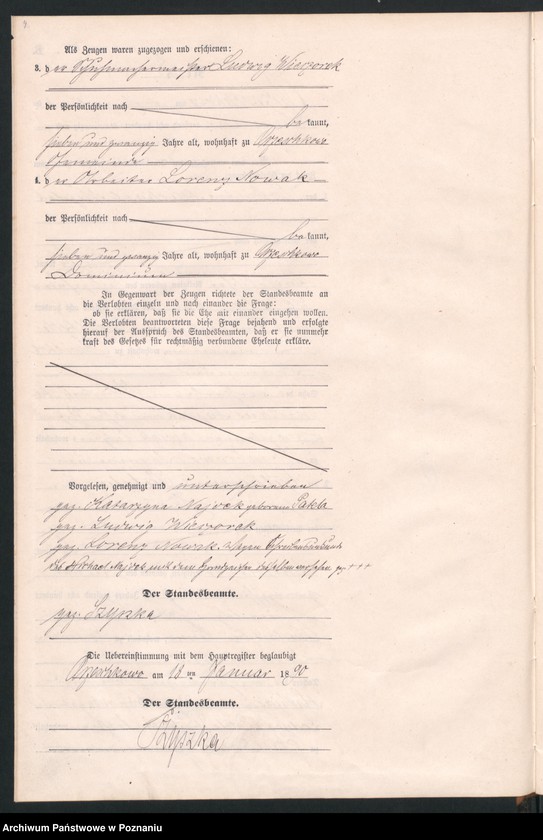 Als Zeugen waren zugezogen und erschienen:
3. der Schuhmachermeister Ludwig Wieczorek
der Persönlichkeit nach
bekannt,
sieben und zwanzig Jahre alt, wohnhaft zu
Gemeinde
4. der Arbeiter Lorenz Nowak
der Persönlichkeit nach
bekannt,
sieben und zwanzig Jahre alt, wohnhaft zu
Dominium
In Gegenwart der Zeugen richtete der Standesbeamte an
die Verlobten einzeln und nach einander die Frage:
ob sie erklären, daß sie die Ehe mit einander eingehen wollen.
Die Verlobten beantworteten diese Frage bejahend und erfolgte
hierauf der Ausspruch des Standesbeamten, daß er sie nunmehr
kraft des Gesetzes für rechtmäßig verbundene Eheleute erkläre.
Vorgelesen, genehmigt und unterschrieben
gez. Katarzyna Najrek geborene Pakla
gez. Ludwig Wieczorek
gez. Lorenz Nowak. Wegen
des Michael Najrek mit dem Handzeichen desselben versehen gez +++
Der Standesbeamte.
gez. Szyszka
Die Uebereinstimmung mit dem Hauptregister beglaubigt
am 18 ten Januar 1890
Der Standesbeamte.
Szyszka
Archiwum Państwowe w Poznaniu